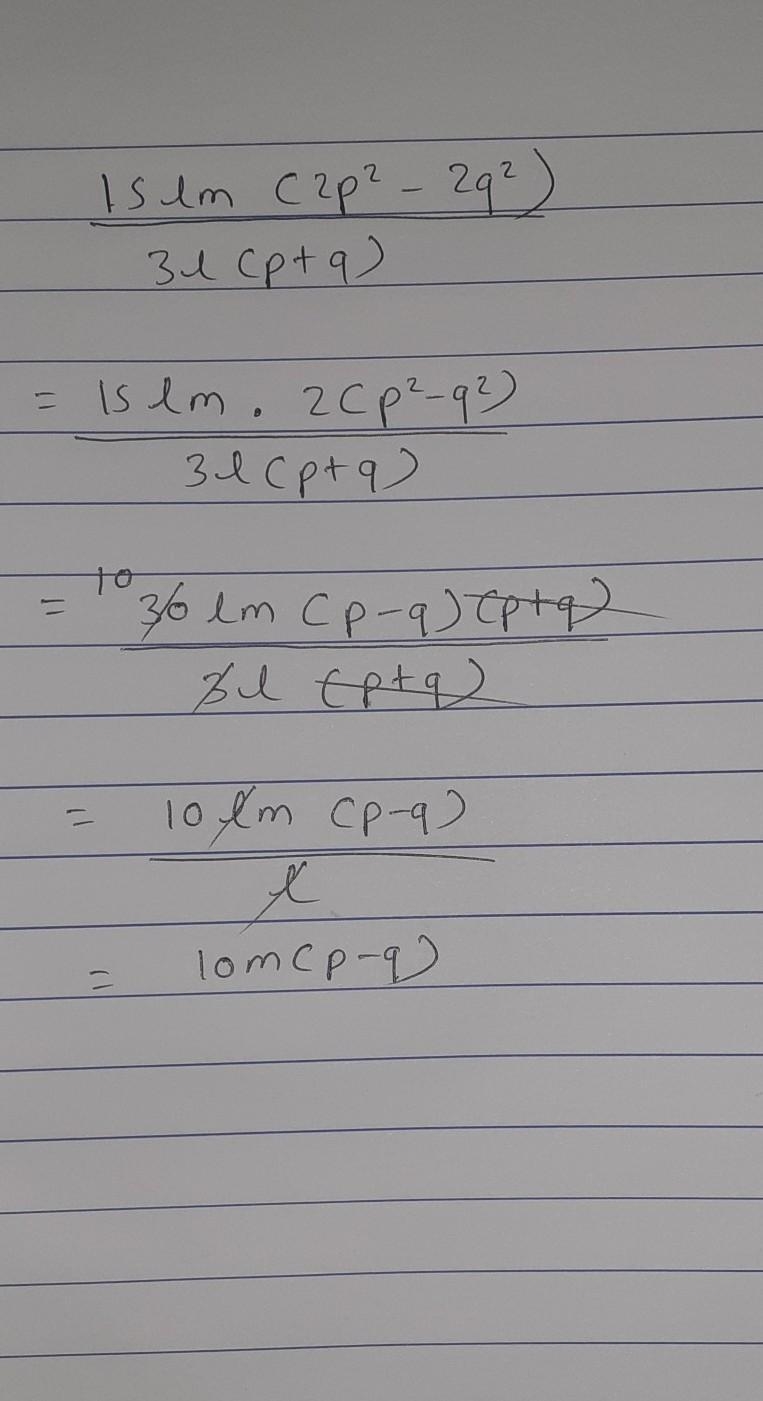 15 lm (2p² - 2q²)
3l (p+q)
= 15 lm . 2(p²-q²)
3l (p+q)
= 10 30 lm (p-q) (p+q)
3l (p+q)
= 10 lm (p-q)
l
= 10m(p-q)